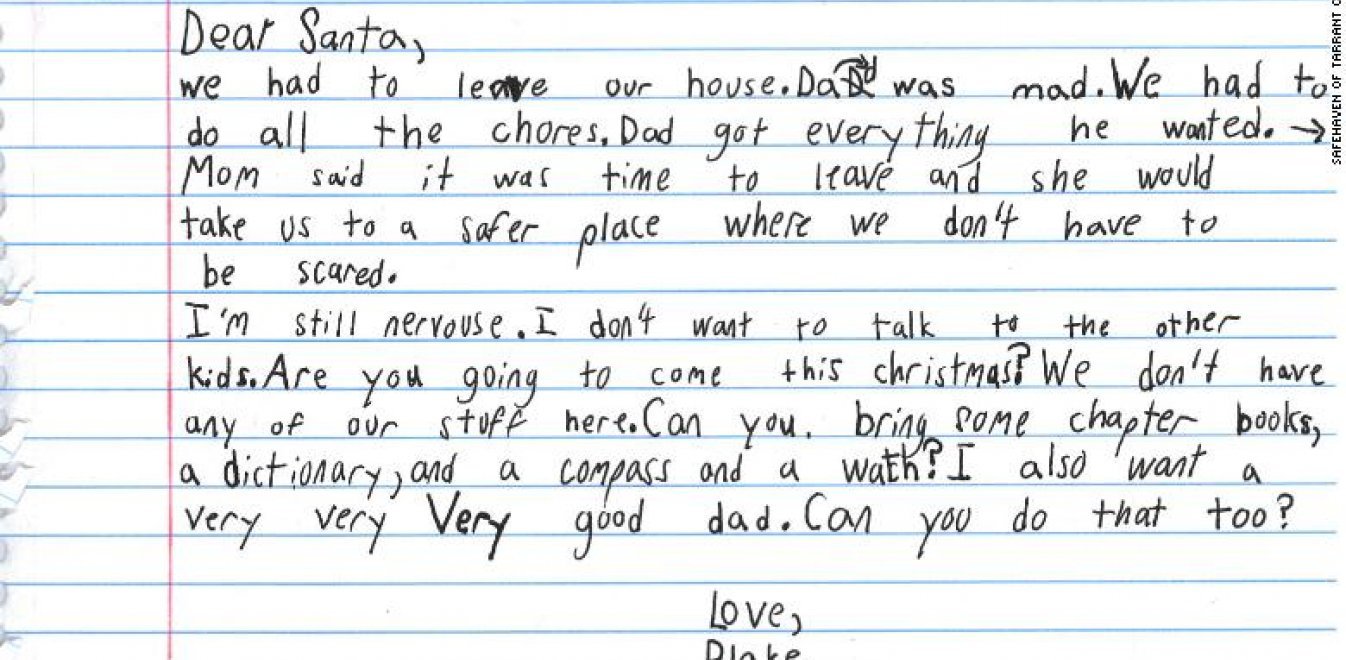 Dear Santa,
we had to leave our house.Dad was mad.We had to
do all the chores.Dad got everything he wanted. →
Mom said it was time to leave and she would
take us to a safer place where we don't have to
be scared.
I'm still nervouse.I don't want to talk to the other
kids.Are you going to come this christmas? We don't have
any of our stuff here.Can you. bring some chapter books,
a dictionary, and a compass and a wath? I also want a
very very Very good dad.Can you do that too?
Love,
Blake
SAFEHAVEN OF TARRANT